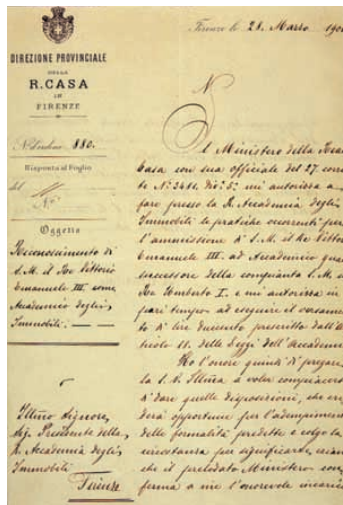 DIREZIONE PROVINCIALE
DELLA
R. CASA
IN
FIRENZE
N. d'ordine 880.
Risposta al Foglio
del
N.
Oggetto
Riconoscimento di
S. M. il Re Vittorio
Emanuele III. come
Accademico degli
Immobili.
Illmo Signore
Sig. Presidente della
R. Accademia degli
Immobili
Firenze
Firenze li 28. Marzo 190
Il Ministero della Real
Casa con sua officiale del 27. corre
te N. 3411. Div. 5. mi autorizza a
fare presso la R. Accademia degli
Immobili le pratiche occorrenti per
l'ammissione di S. M. il Re Vittor
Emanuele III. ad Accademico qua
successore della compianta S. M. il
Re Umberto I. e mi autorizza in
pari tempo ad eseguire il versame
to di lire duecento prescritto dall'A
ticolo 11. delle Leggi dell'Accadem
Ho l'onore quindi di pregare
la S. V. Illma a voler compiacers
di dare quelle disposizioni, che cre
derà opportune per l'adempiment
delle formalità predette e colgo la
circostanza per significarle, ezian
che il prelodato Ministero con
ferma a me l'onorevole incaric